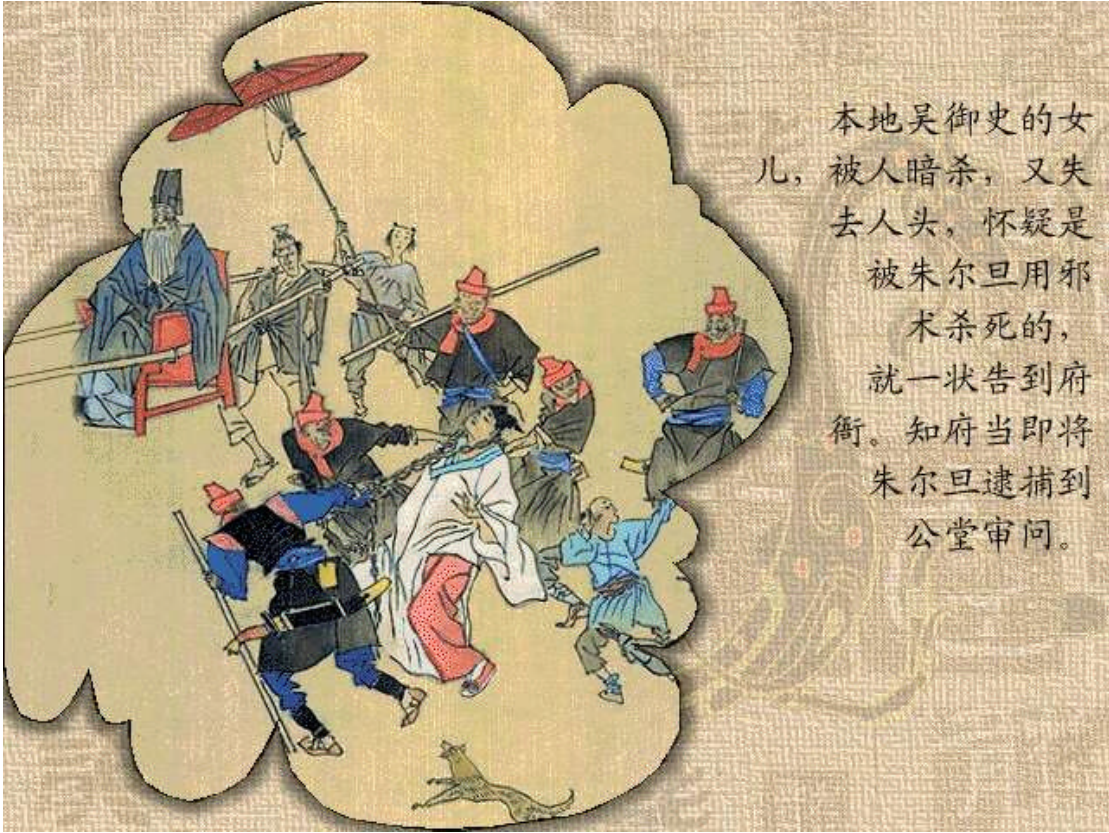 本地吴御史的女
儿，被人暗杀，又失
去人头，怀疑是
被朱尔旦用邪
术杀死的，
就一状告到府
衙。知府当即将
朱尔旦逮捕到
公堂审问。